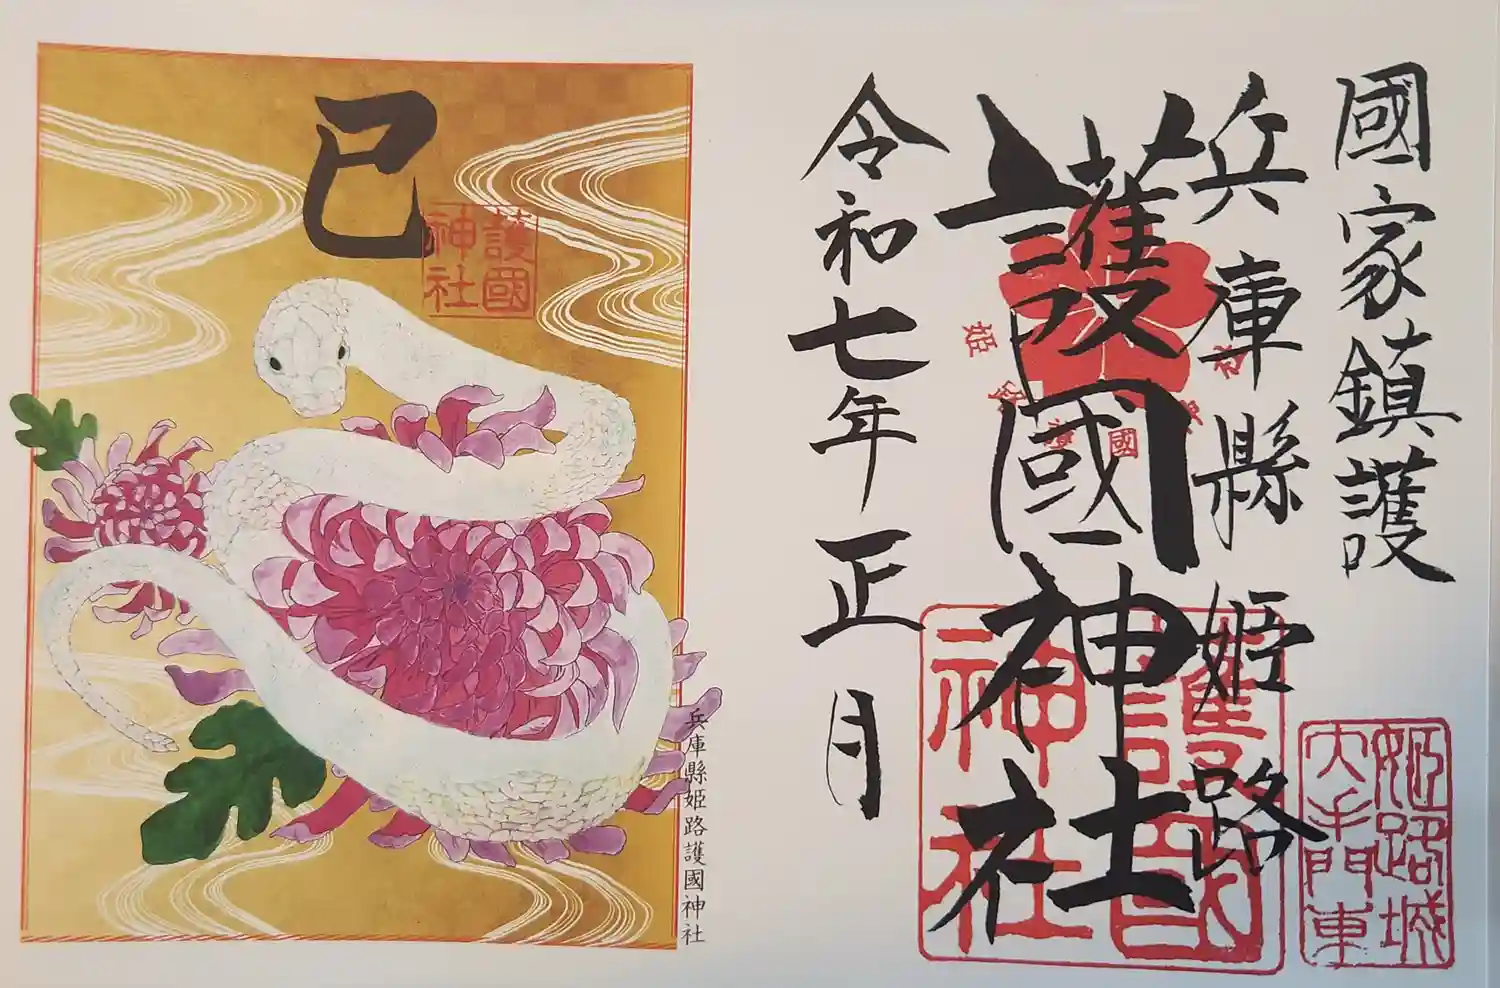 國家鎮護
兵庫縣姫路
護國神社
令和七年正月
姫路城
大手門東
護國
神社
護國
姫
巳
護國
神社
兵庫縣姫路護國神社